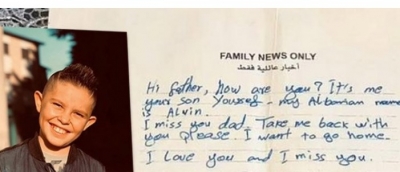 FAMILY NEWS ONLY
أخبار عائلية فقط
Hi father, how are you? It's me
your son Yousef - my Albanian name
is Alvin.
I miss you dad. Take me back with
you please. I want to go home.
I love you and I miss you.